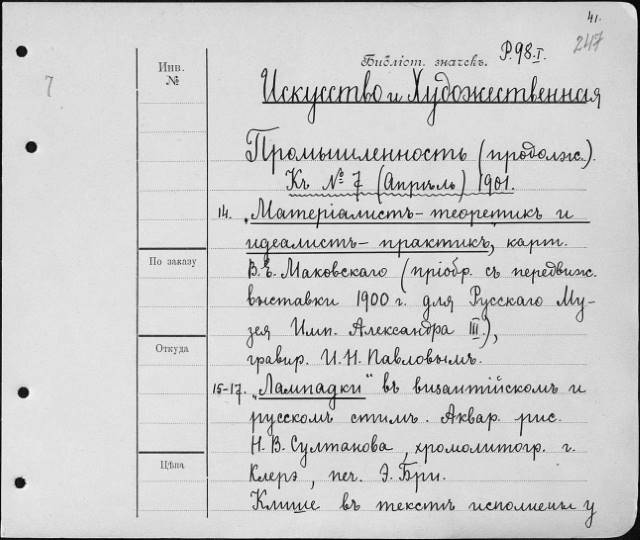 41.
247
Инв.
№
Библіот. значекъ. Р.98.I.
7
Искусство и Художественная
Промышленность (продолж.).
Къ № 7 (Апрѣль) 1901.
14. „Матеріалистъ-теоретикъ и
идеалистъ-практикъ", карт.
По заказу
В. Е. Маковскаго (пріобр. съ передвиж.
выставки 1900 г. для Русскаго Му-
зея Имп. Александра III),
Откуда
гравир. И. Н. Павловымъ.
15-17. „Лампадки" въ византійскомъ и
русскомъ стилѣ. Аквар. рис.
Н. В. Султанова, хромолитогр. г.
Цѣна
Клерэ, печ. Э. Бри.
Клише въ текстѣ исполнены у